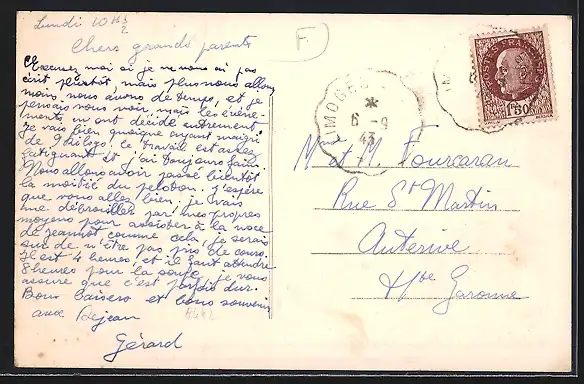 Lundi 10 H ½
Chers grands parents
Excusez moi si je ne vous ai pas
écrit plutôt, mais plus nous allons
moins nous avons de temps, et je
pensais vous voir mais les évène-
ments en ont décidé autrement.
Je vais bien quoique ayant maigri
de kilogs. Le travail est assez
fatiguant et j'ai toujours faim.
Nous allons avoir passé bientôt
la moitié du peloton. J'espère
que vous allez bien. Je vais
me débrouiller par mes propres
moyens pour assister à la noce
de Jeannot comme cela, je serais
sur de n'être pas pris de court.
Il est 4 heures et il faut attendre
8 heures pour la soupe, je vous
assure que c'est parfois dur.
Bons baisers et bons souvenirs
aux Dejean
Gérard
F
LIMOGES
6 - 9
43
POSTES FRANÇAISES
1F50
Mme et M. Fourcaran
Rue St Martin
Auterive
Hte Garonne